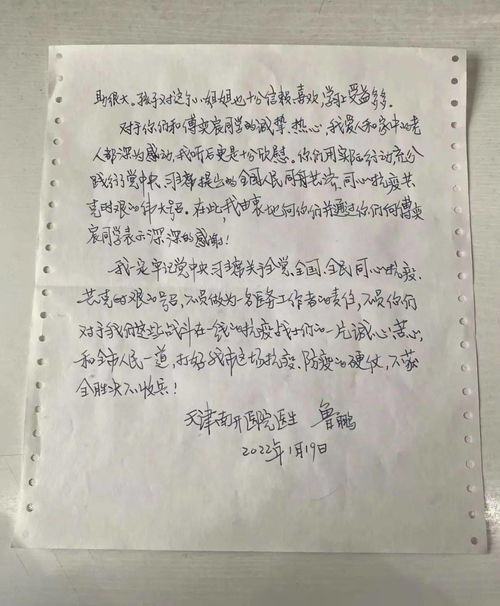 助很大。孩子对这个小姐姐也十分信赖、喜欢,学习上受益多多。
对于你们和傅奕宸同学的诚挚、热心,我爱人和家中的老
人都深为感动,我听后更是十分欣慰。你们用实际行动充分
践行了党中央、习主席提出的全国人民同舟共济、同心抗疫、共
克时艰的伟大号召。在此我由衷地向你们并通过你们向傅奕
宸同学表示深深的感谢!
我一定牢记党中央、习主席关于全党、全国、全民同心抗疫、
共克时艰的号召,不负做为一名医务工作者的责任,不负你们
对于我们这些战斗在一线的抗疫战士们的一片诚心、苦心,
和全市人民一道,打好我市这场抗疫、防疫的硬仗,不获
全胜决不收兵!
天津南开医院医生 鲁鹏
2022年1月19日